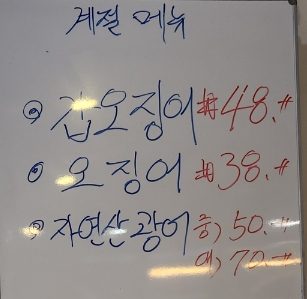 계절 메뉴
◎ 갑오징어 #48.-#
◎ 오징어 #38.-#
◎ 자연산 광어 중) 50.-#
대) 70.-#